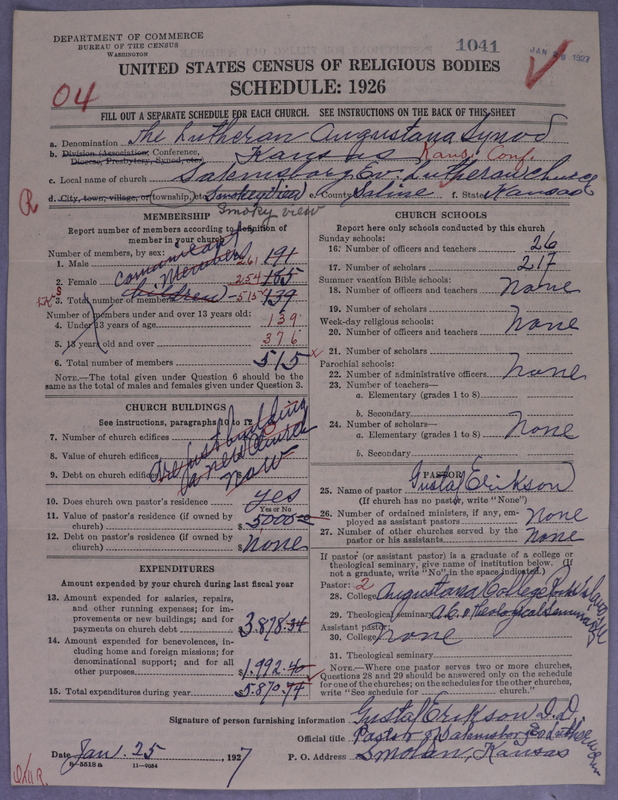 DEPARTMENT OF COMMERCE
BUREAU OF THE CENSUS
WASHINGTON
1041
JAN 1927
UNITED STATES CENSUS OF RELIGIOUS BODIES
SCHEDULE: 1926
04
FILL OUT A SEPARATE SCHEDULE FOR EACH CHURCH. SEE INSTRUCTIONS ON THE BACK OF THIS SHEET
a. Denomination The Lutheran Augustana Synod
b. Division (Association, Conference, Diocese, Presbytery, Synod, etc.) Kansas Kans. Conf.
c. Local name of church Salemsborg Ev. Lutheran Church
d. City, town, village, or township, etc. Smokyview e. County Saline f. State Kansas
Smoky view
R
MEMBERSHIP
Report number of members according to definition of
member in your church
Number of members, by sex:
1. Male 261 191
2. Female 254 185
3. Total number of members 515 139
communicant Members
children
Number of members under and over 13 years old:
4. Under 13 years of age 139
5. 13 years old and over 376
6. Total number of members 515
NOTE.—The total given under Question 6 should be
same as the total of males and females given under Question 3.
CHURCH BUILDINGS
See instructions, paragraphs 10 to 12
7. Number of church edifices
8. Value of church edifices
9. Debt on church edifices
Are just building
a new Church
now
10. Does church own pastor's residence yes
Yes or No
11. Value of pastor's residence (if owned by
church) $ 5000
12. Debt on pastor's residence (if owned by
church) $ None
EXPENDITURES
Amount expended by your church during last fiscal year
13. Amount expended for salaries, repairs,
and other running expenses; for im-
provements or new building; and for
payments on church debt $ 3.878.34
14. Amount expended for benevolences, in-
cluding home and foreign missions; for
denominational support; and for all
other purposes $ 1.992.40
15. Total expenditures during year $ 5.870.74
CHURCH SCHOOLS
Report here only schools conducted by this church
Sunday schools:
16. Number of officers and teachers 26
17. Number of scholars 217
Summer vacation Bible schools:
18. Number of officers and teachers None
19. Number of scholars
Week-day religious schools:
20. Number of officers and teachers None
21. Number of scholars
Parochial schools:
22. Number of administrative officers None
23. Number of teachers—
a. Elementary (grades 1 to 8)
b. Secondary
24. Number of scholars—
a. Elementary (grades 1 to 8) None
b. Secondary
PASTOR
25. Name of pastor Gustaf Erikson
(If church has no pastor, write "None")
26. Number of ordained ministers, if any, em-
ployed as assistant pastors None
27. Number of other churches served by the
pastor or his assistants None
If pastor (or assistant pastor) is a graduate of a college or
theological seminary, give name of institution below. (If
not a graduate, write "No" in the space indicated.)
Pastor: 2
28. College Augustana College Rock Island Ill
29. Theological seminary A.C. & Theological Seminary
Assistant pastor:
30. College None
31. Theological seminary
NOTE.—Where one pastor serves two or more churches,
Questions 28 and 29 should be answered only on the schedule
for one of the churches; on the schedules for the other churches,
write "See schedule for church."
Signature of person furnishing information Gustaf Erikson D.D.
Official title Pastor of Salemsborg Ev. Lutheran
Date Jan. 25, 1927 P. O. Address Smolan, Kansas
8—5518 a 11—9084